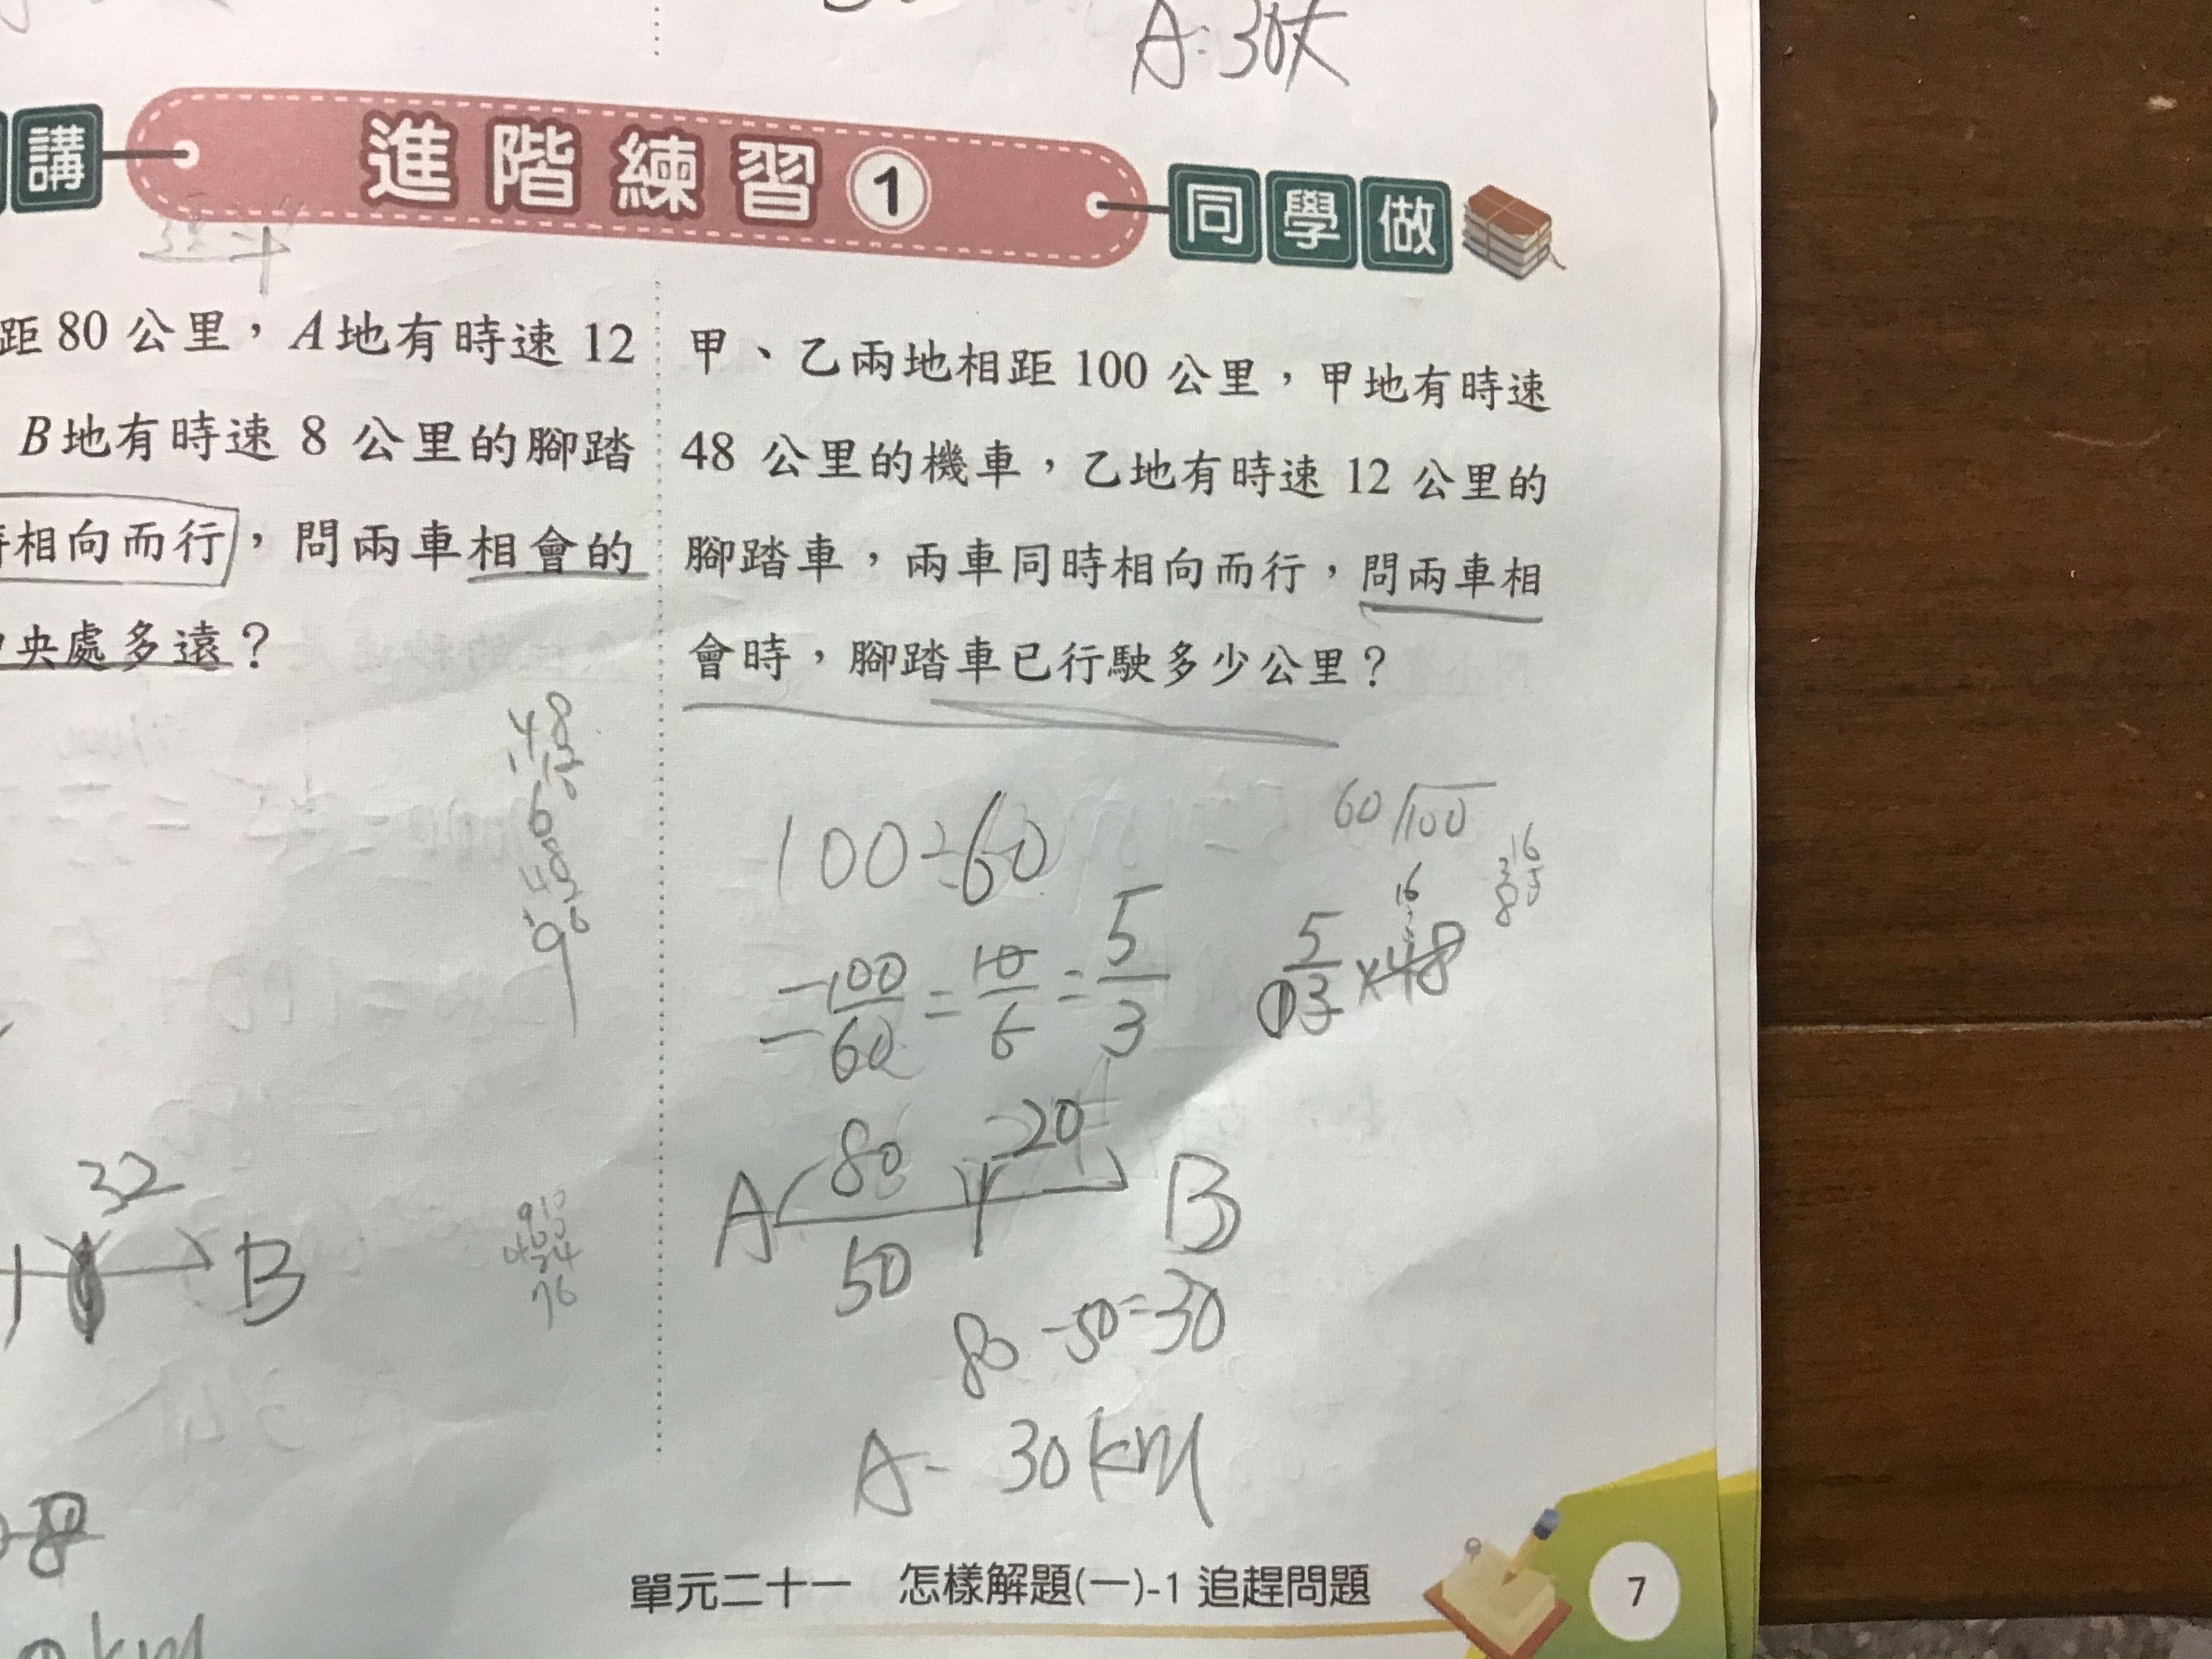 A：30天
講
進階練習①
同學做
距 80 公里，A地有時速 12
B地有時速 8 公里的腳踏
相向而行，問兩車相會的
央處多遠？
甲、乙兩地相距 100 公里，甲地有時速
48 公里的機車，乙地有時速 12 公里的
腳踏車，兩車同時相向而行，問兩車相
會時，腳踏車已行駛多少公里？
48
60
100÷60
60 100
16
= 100/60 = 10/6 = 5/3
5/3 × 48
1
80 20
A B
50
80 - 50 = 30
A - 30km
32
B
76
km
單元二十一 怎樣解題(一)-1 追趕問題
7